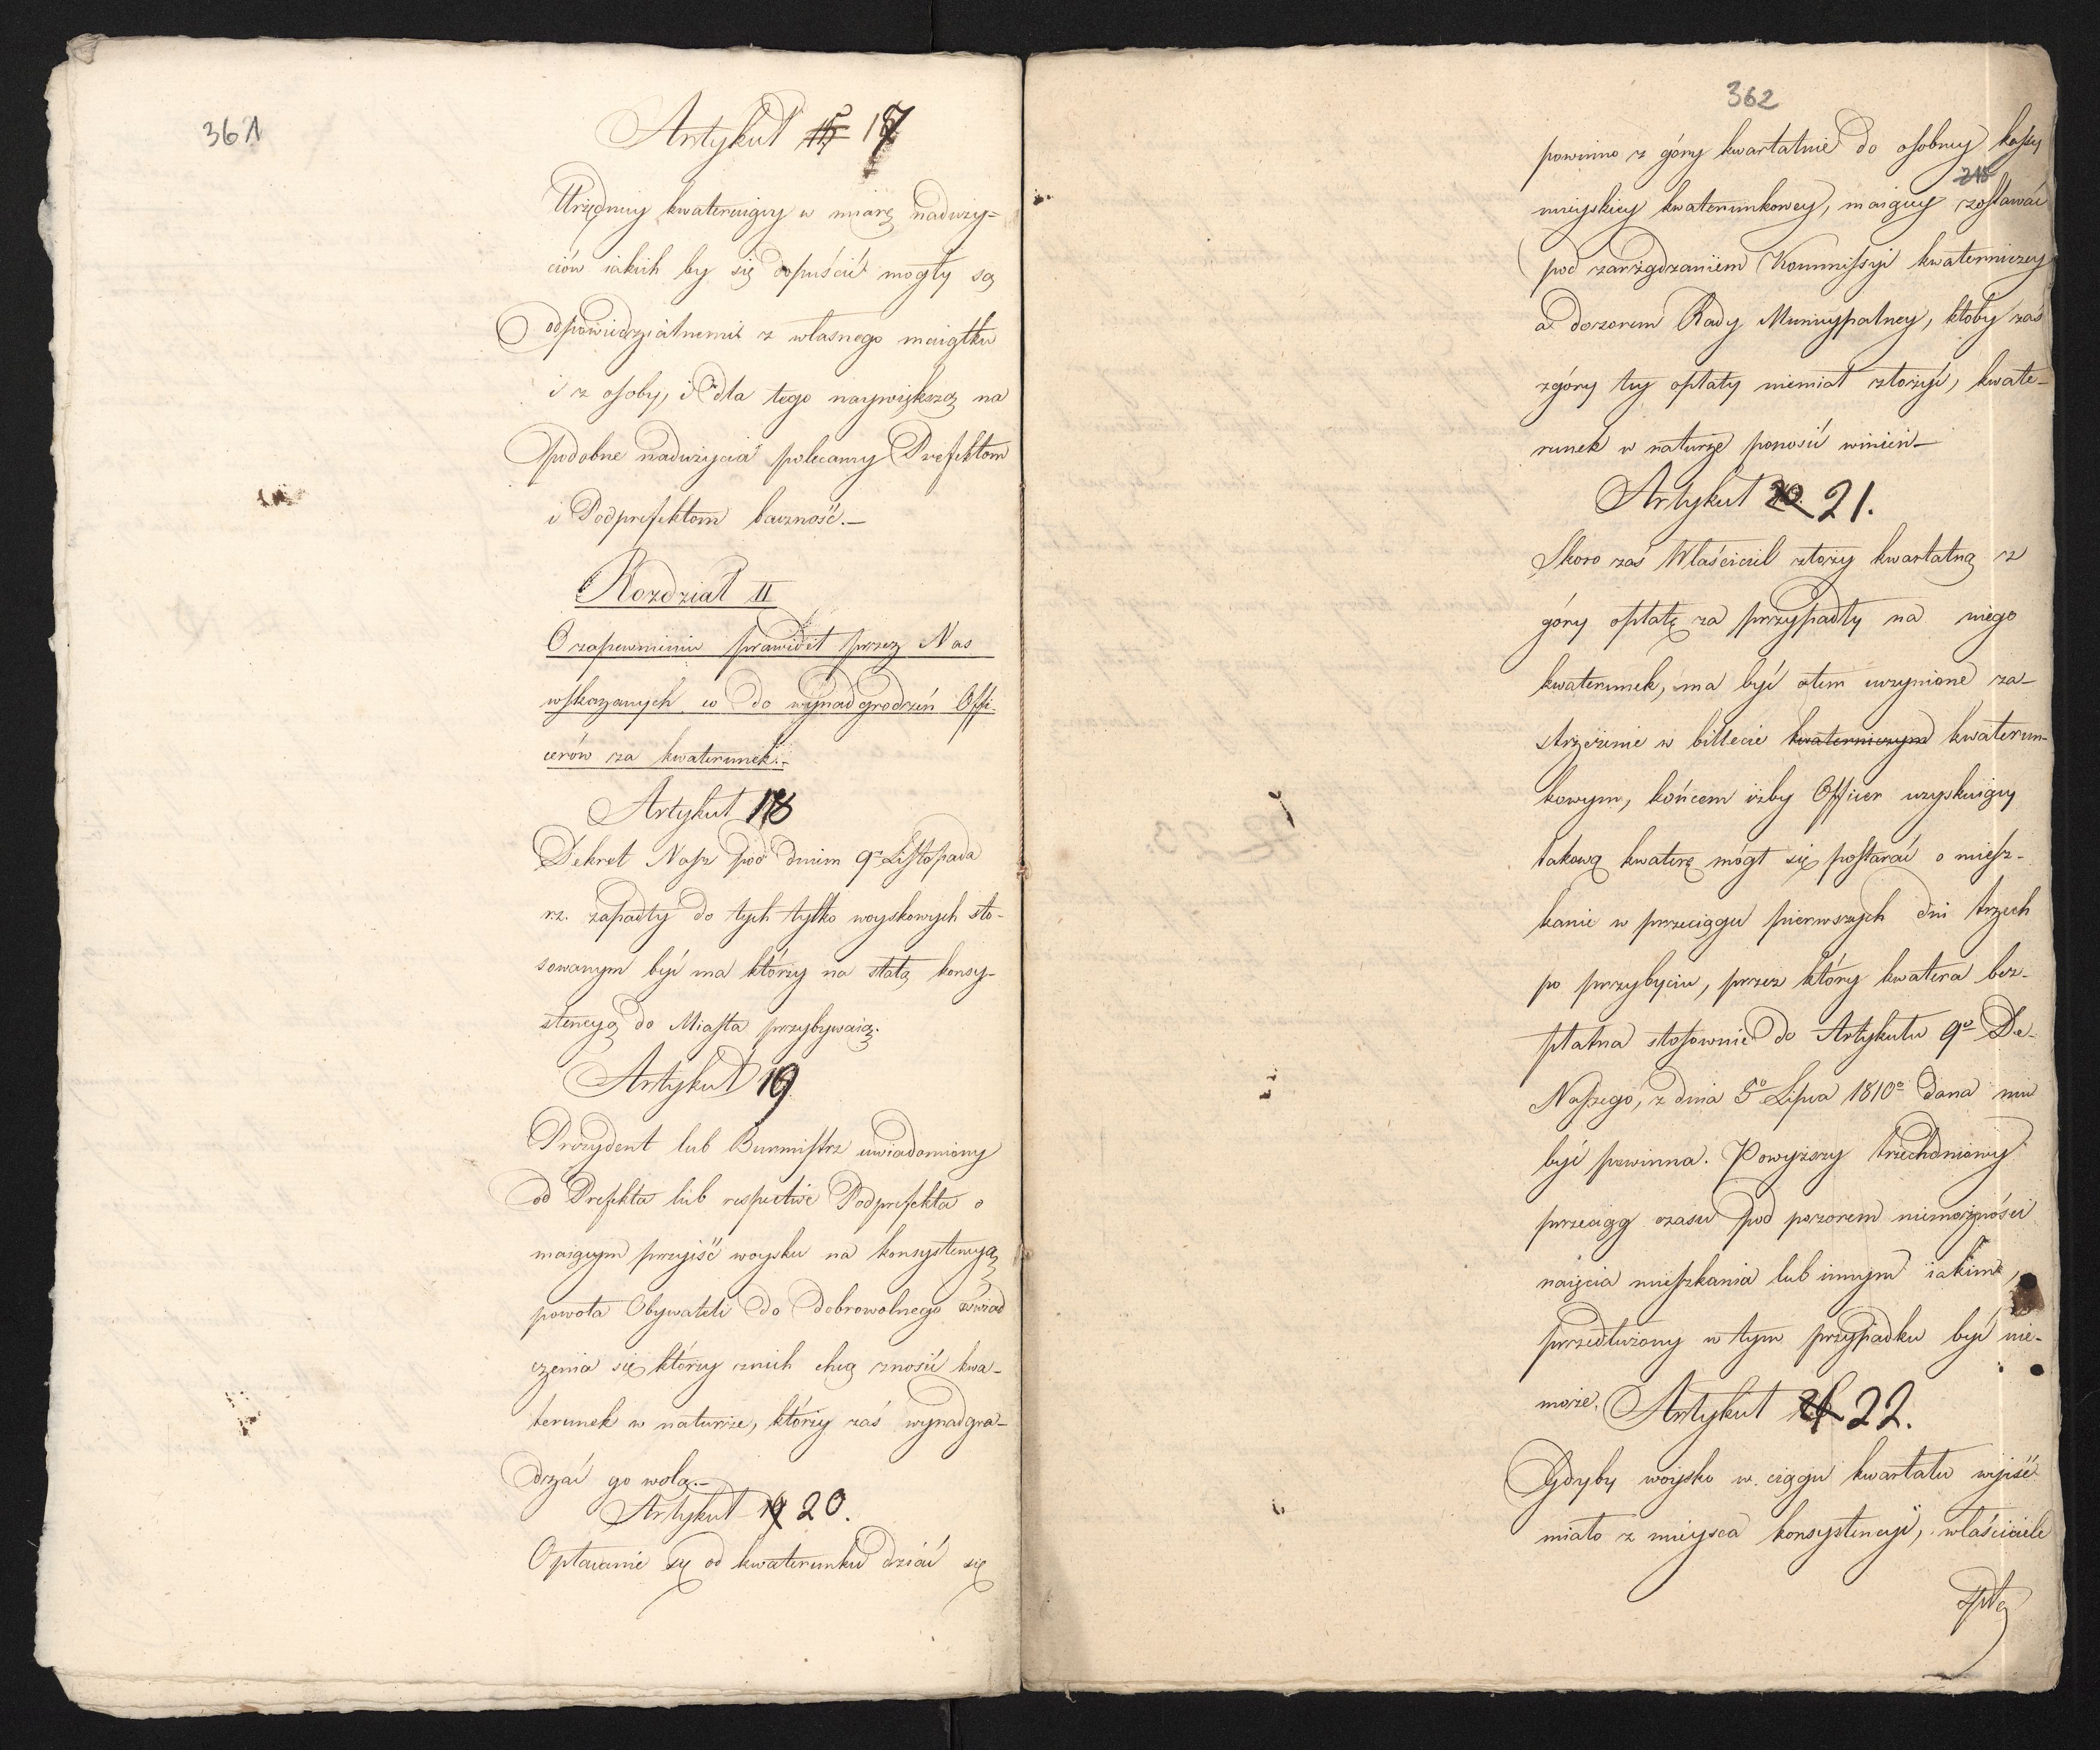 361
Artykuł 15 17
Urzędnicy kwaterujący w miarę naduży=
ciów iakich by się dopuścić mogły są
odpowiedzialnemi z własnego maiątku
i z osoby, i dla tego naywiększą na
podobne nadużycia polecamy Prefektom
i Podprefektom baczność.—
Rozdział II
O zapewnieniu prawideł przez Nas
wskazanych co do wynadgrodzeń Offi-
cerów za kwaterunek.-
Artykuł 18
Dekret Nasz pod dniem 9º Listopada
rz. zapadły do tych tylko woyskowych sto-
sowanym być ma którzy na stałą konsy-
stencyą do Miasta przybywaią.
Artykuł 19
Prezydent lub Burmistrz uwiadomiony
od Prefekta lub respective Podprefekta o
maiącym przyiść woysku na konsystencyą
powoła Obywateli do dobrowolnego oświad
czenia się którzy znich chcą znosić kwa-
terunek w naturze, którzy zaś wynadgra-
dzać go wolą.—
Artykuł 19 20.
Opłacanie się od kwaterunku dziać się
362
powinno z góry kwartalnie do osobney kassy
215
mieyskiey kwaterunkowey, maiącey zostawać
pod zarządzaniem Kommissyi kwaterniczey
a dozorem Rady Municypalney, ktoby zaś
zgóry tey opłaty niemiał złożyć, kwate-
runek w naturze ponosić winien—
Artykuł 20. 21.
Skoro zaś Właściciel złoży kwartalną z
góry opłatę za przypadły na niego
kwaterunek, ma być otem uczynione za-
strzeżenie w billecie kwaterniczym kwaterun-
kowym, końcem iżby Officer uzyskuiący
takową kwaterę mógł się postarać o miesz-
kanie w przeciągu pierwszych dni trzech
po przybyciu, przez który kwatera bez-
płatna stosownie do Artykułu 9º De-
Naszego, z dnia 5º Lipca 1810º dana mu
być powinna. Powyższy trzechdniowy
przeciąg czasu pod pozorem niemożności
naięcia mieszkania lub innym iakim,
przedłużony w tym przypadku być nie-
może. Artykuł 21 22.
Gdyby woysko w ciągu kwartału wyiść
miało z mieysca konsystencyi, właściciele